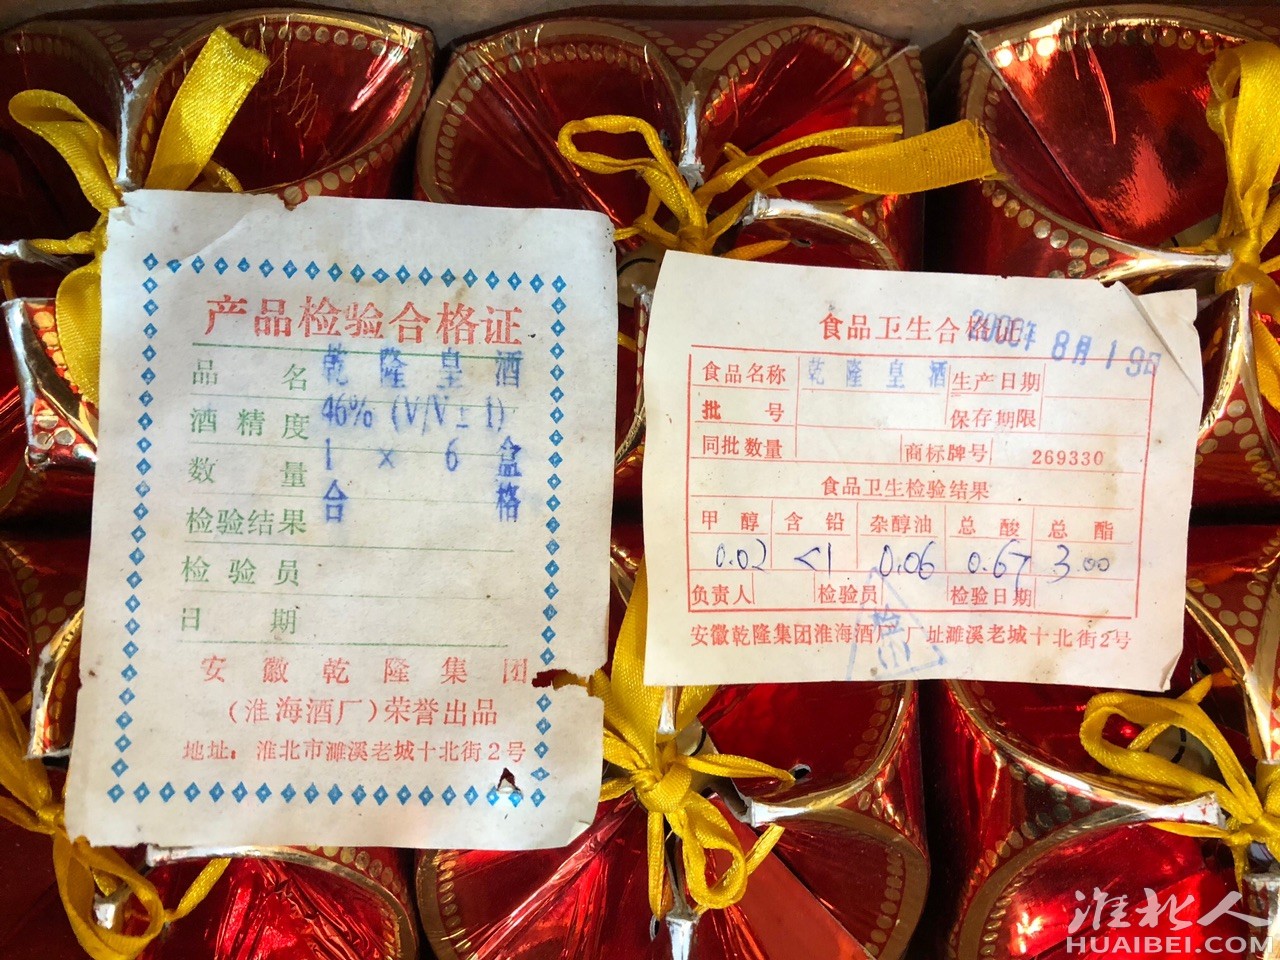 产品检验合格证
品名 乾隆皇酒
酒精度 46% (V/V±1)
数量 1×6盒
检验结果 合格
检验员
日期
安徽乾隆集团
(淮海酒厂)荣誉出品
地址：淮北市濉溪老城十北街2号
食品卫生合格证
8月19日
食品名称 乾隆皇酒 生产日期
批号 保存期限
同批数量 商标牌号 269330
食品卫生检验结果
甲醇 含铅 杂醇油 总酸 总酯
0.02 <1 0.06 0.67 3.00
负责人 检验员 检验日期
安徽乾隆集团淮海酒厂 厂址濉溪老城十北街2号
淮北人
HUAIBEI.COM